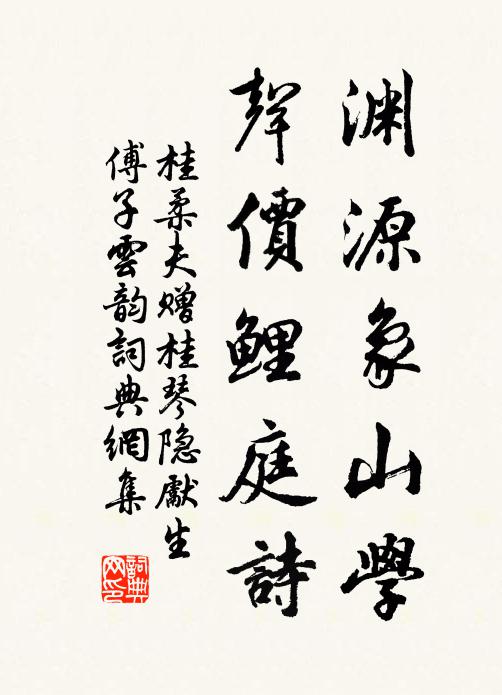 渊源象山學
聲價鯉庭詩
桂柔夫赠桂琴隐獻生
傅子雲韵詞典網集
詞典网印